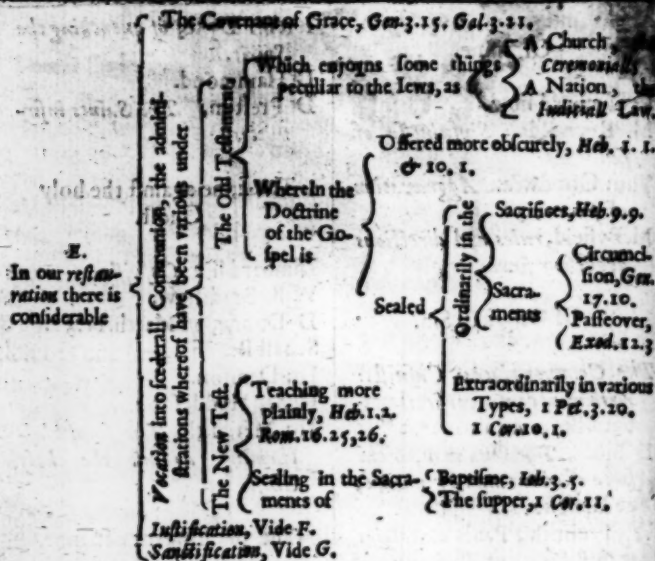 The Covenant of Grace, Gen.3.15. Gal.3.21.
E.
In our restau-
ration there is
considerable
Vocation into foederall Communion, the admini-
strations whereof have been various under
The Old Testament,
Which enjoyns some things
peculiar to the Iews, as
A Church,
Ceremoniall
A Nation, the
Iudiciall Law.
Wherein the
Doctrine
of the Go-
spel is
Offered more obscurely, Heb. 1. 1.
& 10. 1.
Sealed
Ordinarily in the
Sacrifices, Heb. 9.9.
Sacra-
ments
Circumci-
sion, Gen.
17.10.
Passeover,
Exod.12.3
Extraordinarily in various
Types, 1 Pet.3.20.
1 Cor.10.1.
The New Test.
Teaching more
plainly, Heb.1.2.
Rom.16.25,26.
Sealing in the Sacra-
ments of
Baptisme, Ioh.3.5.
The supper, 1 Cor.11.
Iustification, Vide F.
Sanctification, Vide G.